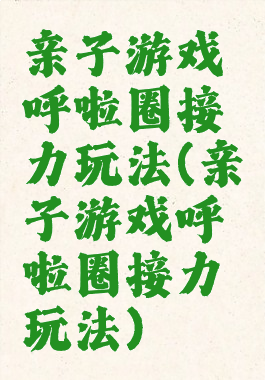 亲子游戏
呼啦圈接
力玩法(亲
子游戏呼
啦圈接力
玩法)